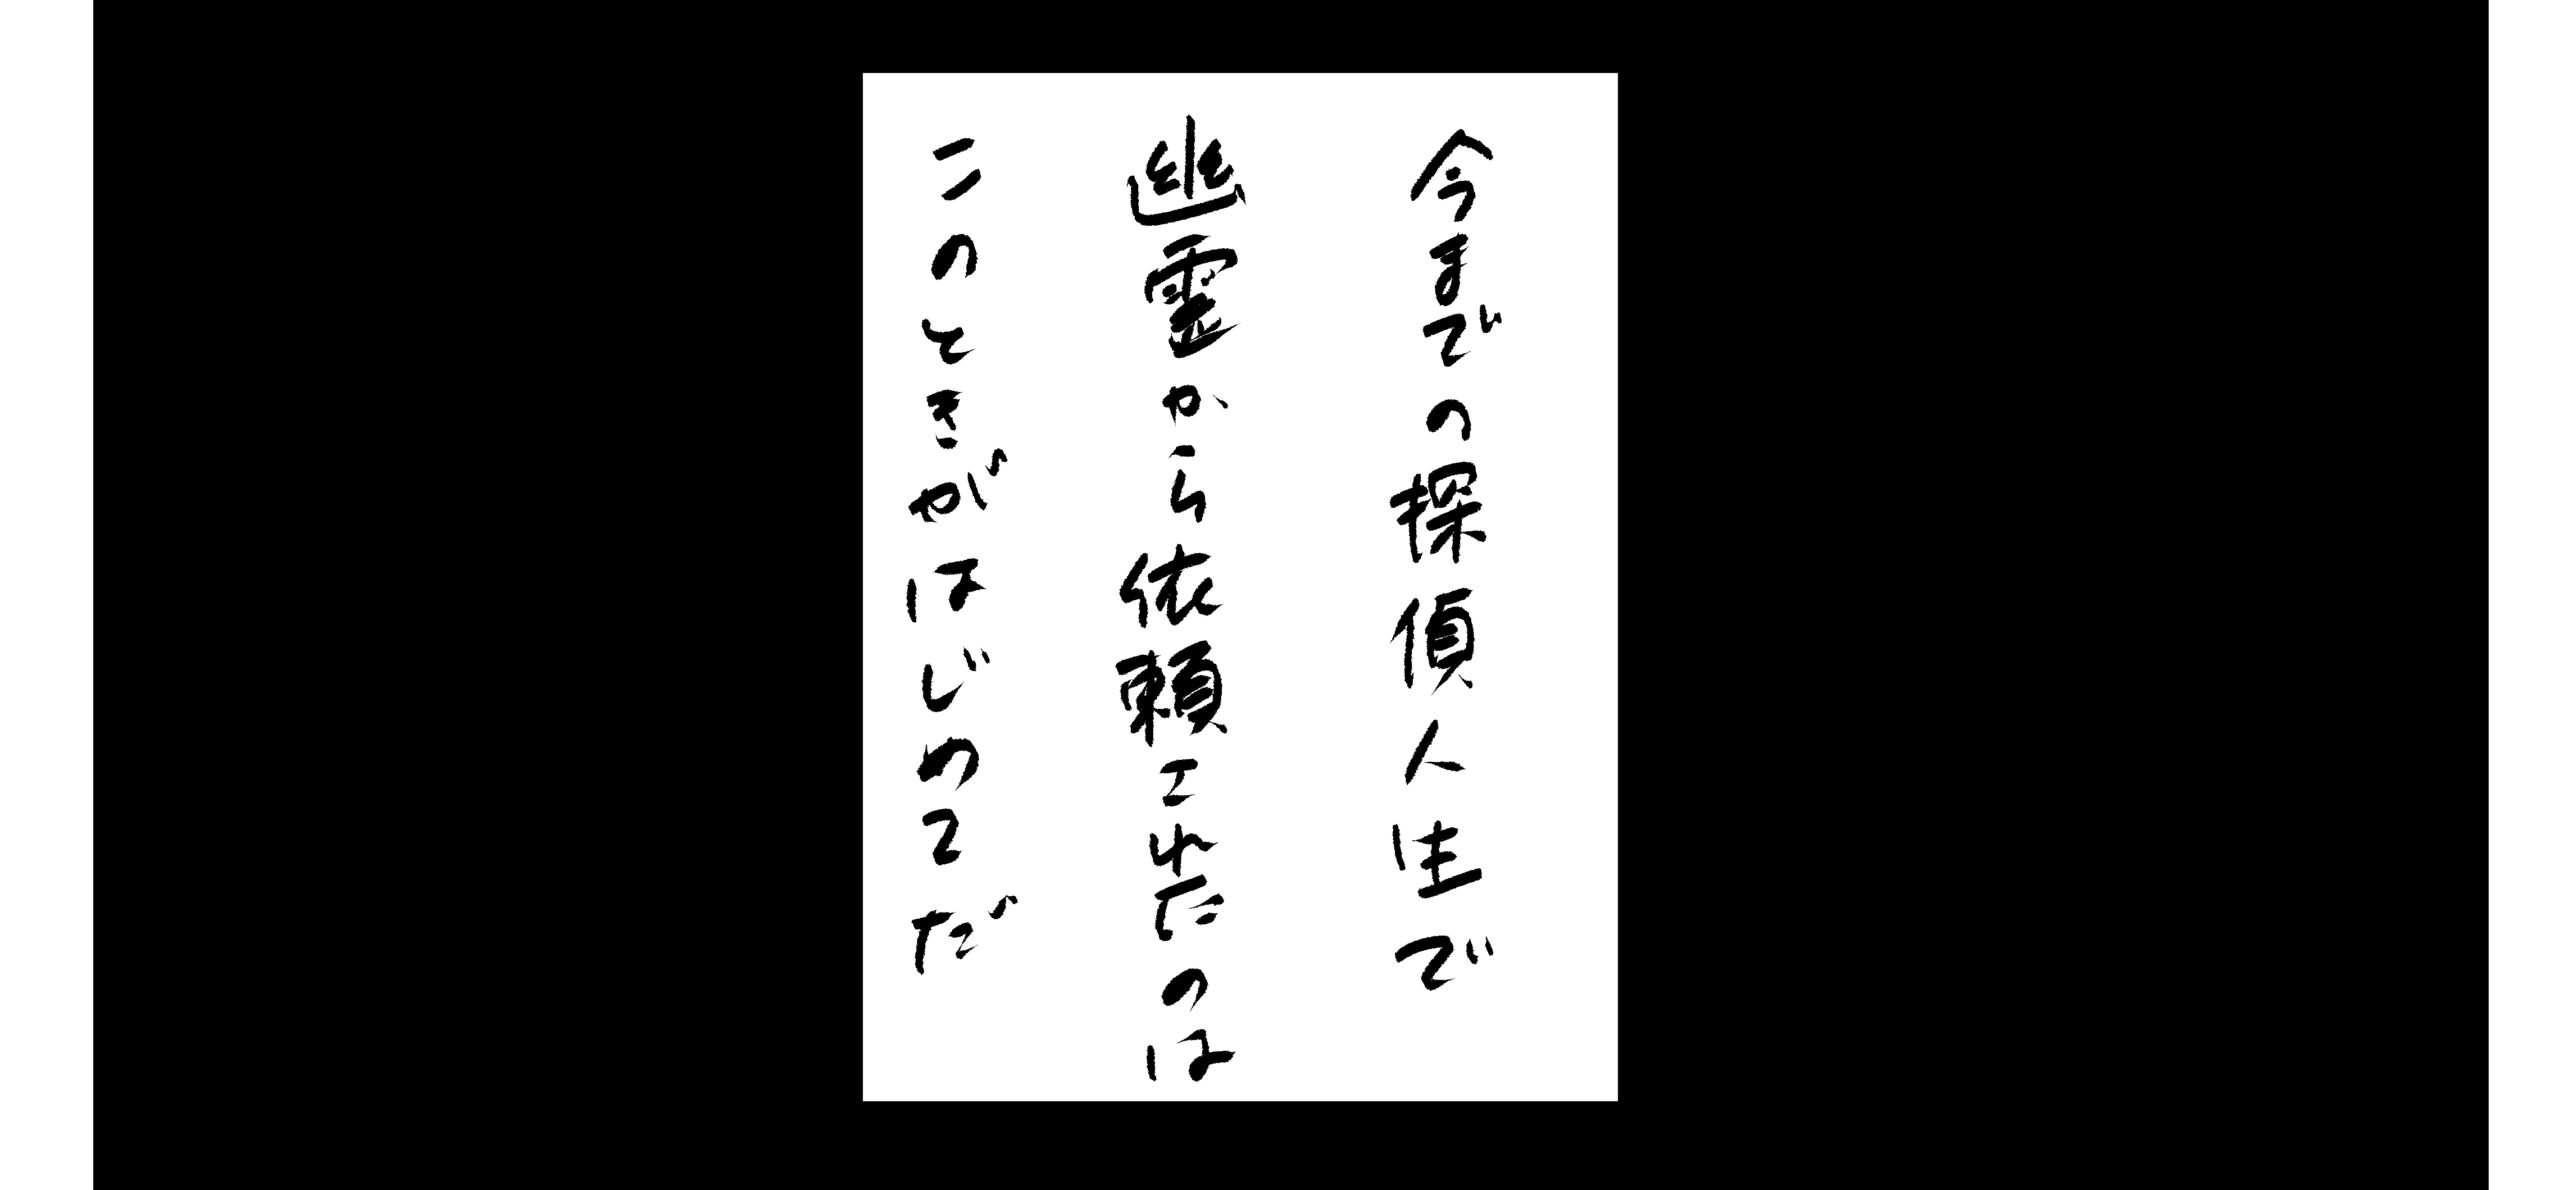 今までの探偵人生で
幽霊から依頼されたのは
このときがはじめてだ